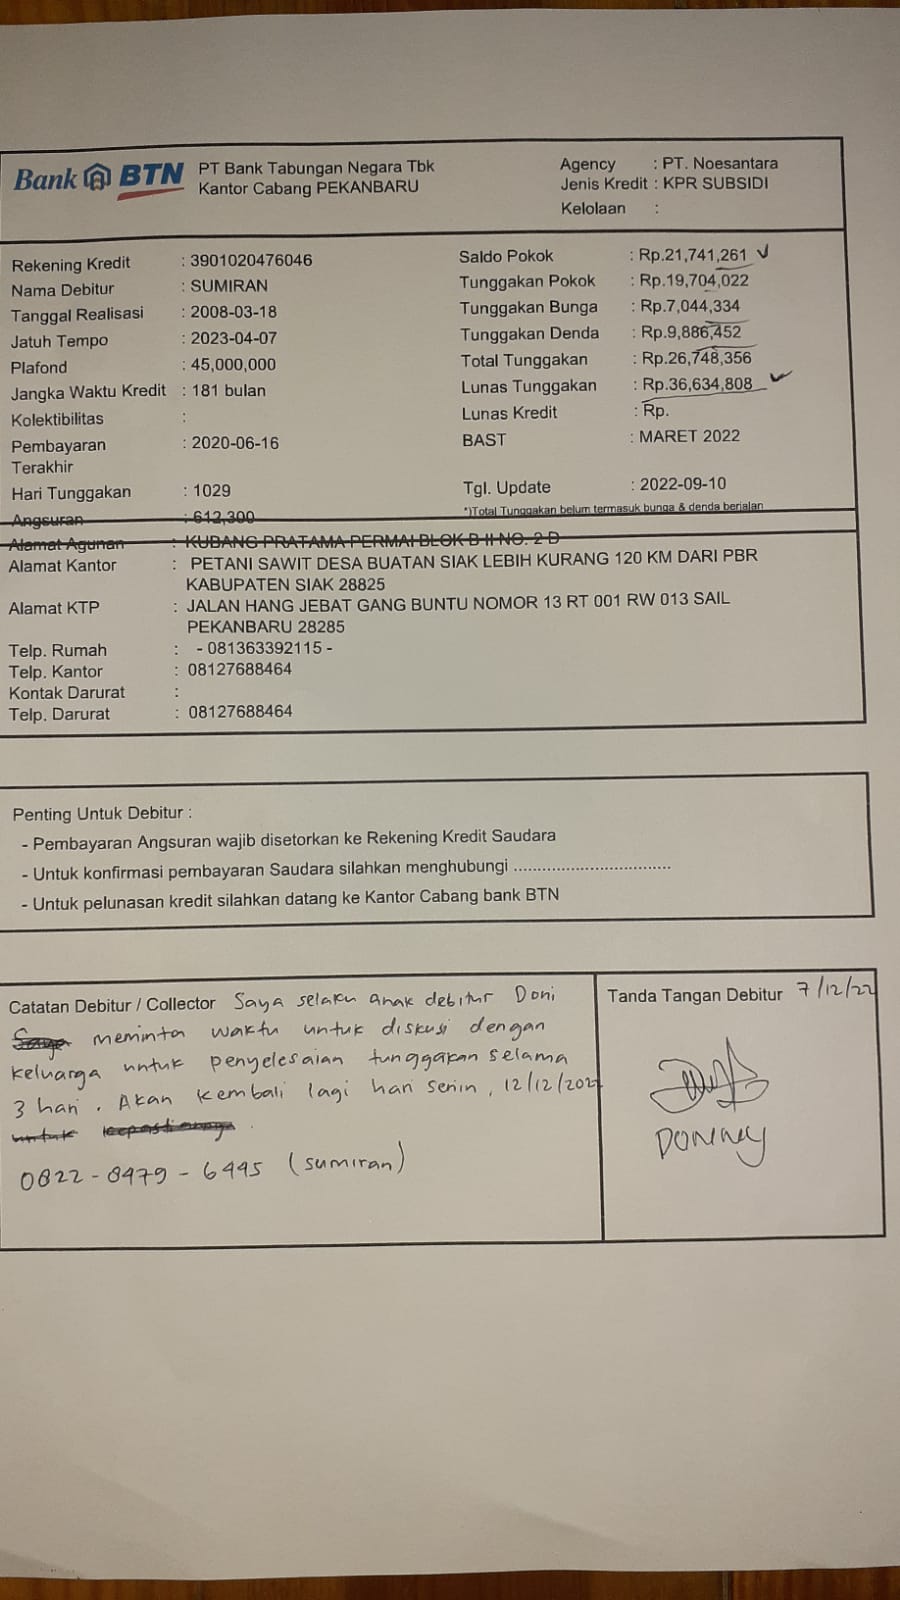 Bank BTN PT Bank Tabungan Negara Tbk
Kantor Cabang PEKANBARU
Agency : PT. Noesantara
Jenis Kredit : KPR SUBSIDI
Kelolaan :
Rekening Kredit : 3901020476046
Nama Debitur : SUMIRAN
Tanggal Realisasi : 2008-03-18
Jatuh Tempo : 2023-04-07
Plafond : 45,000,000
Jangka Waktu Kredit : 181 bulan
Kolektibilitas :
Pembayaran : 2020-06-16
Terakhir
Hari Tunggakan : 1029
Angsuran : 612,300
Saldo Pokok : Rp.21,741,261
Tunggakan Pokok : Rp.19,704,022
Tunggakan Bunga : Rp.7,044,334
Tunggakan Denda : Rp.9,886,452
Total Tunggakan : Rp.26,748,356
Lunas Tunggakan : Rp.36,634,808
Lunas Kredit : Rp.
BAST : MARET 2022
Tgl. Update : 2022-09-10
*)Total Tunggakan belum termasuk bunga & denda berjalan
Alamat Agunan : KUBANG PRATAMA PERMAI BLOK B II NO. 2 D
Alamat Kantor : PETANI SAWIT DESA BUATAN SIAK LEBIH KURANG 120 KM DARI PBR
KABUPATEN SIAK 28825
Alamat KTP : JALAN HANG JEBAT GANG BUNTU NOMOR 13 RT 001 RW 013 SAIL
PEKANBARU 28285
Telp. Rumah : - 081363392115 -
Telp. Kantor : 08127688464
Kontak Darurat :
Telp. Darurat : 08127688464
Penting Untuk Debitur :
- Pembayaran Angsuran wajib disetorkan ke Rekening Kredit Saudara
- Untuk konfirmasi pembayaran Saudara silahkan menghubungi .................................
- Untuk pelunasan kredit silahkan datang ke Kantor Cabang bank BTN
Catatan Debitur / Collector Saya selaku anak debitur Doni
Saya meminta waktu untuk diskusi dengan
keluarga untuk penyelesaian tunggakan selama
3 hari. Akan kembali lagi hari senin, 12/12/202
untuk kepastiannya.
0822-8479-6495 (sumiran)
Tanda Tangan Debitur 7/12/22